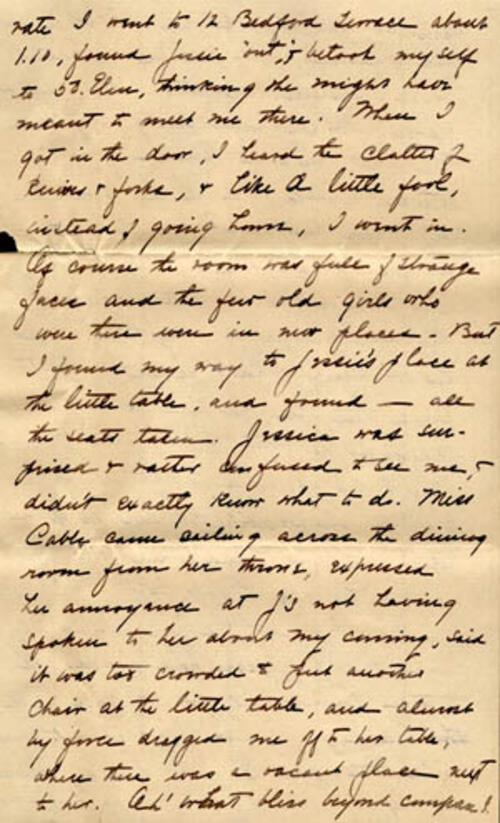 rate I went to 12 Bedford Terrace about
1.10, found Jessie "out", & betook myself
to 50. Elm, thinking she might have
meant to meet me there. When I
got in the door, I heard the clatter of
knives & forks, & like a little fool,
instead of going home, I went in.
Of course the room was full of strange
faces and the few old girls who
were there were in new places - But
I found my way to Jessie's place at
the little table, and found — all
the seats taken. Jessica was sur-
prised & rather confused to see me, &
didn't exactly know what to do. Miss
Cable came sailing across the dining
room from her throne, expressed
her annoyance at J's not having
spoken to her about my coming, said
it was too crowded to put another
chair at the little table, and almost
by force dragged me off to her table,
where there was a vacant place next
to her. Ah! what bliss beyond compare!